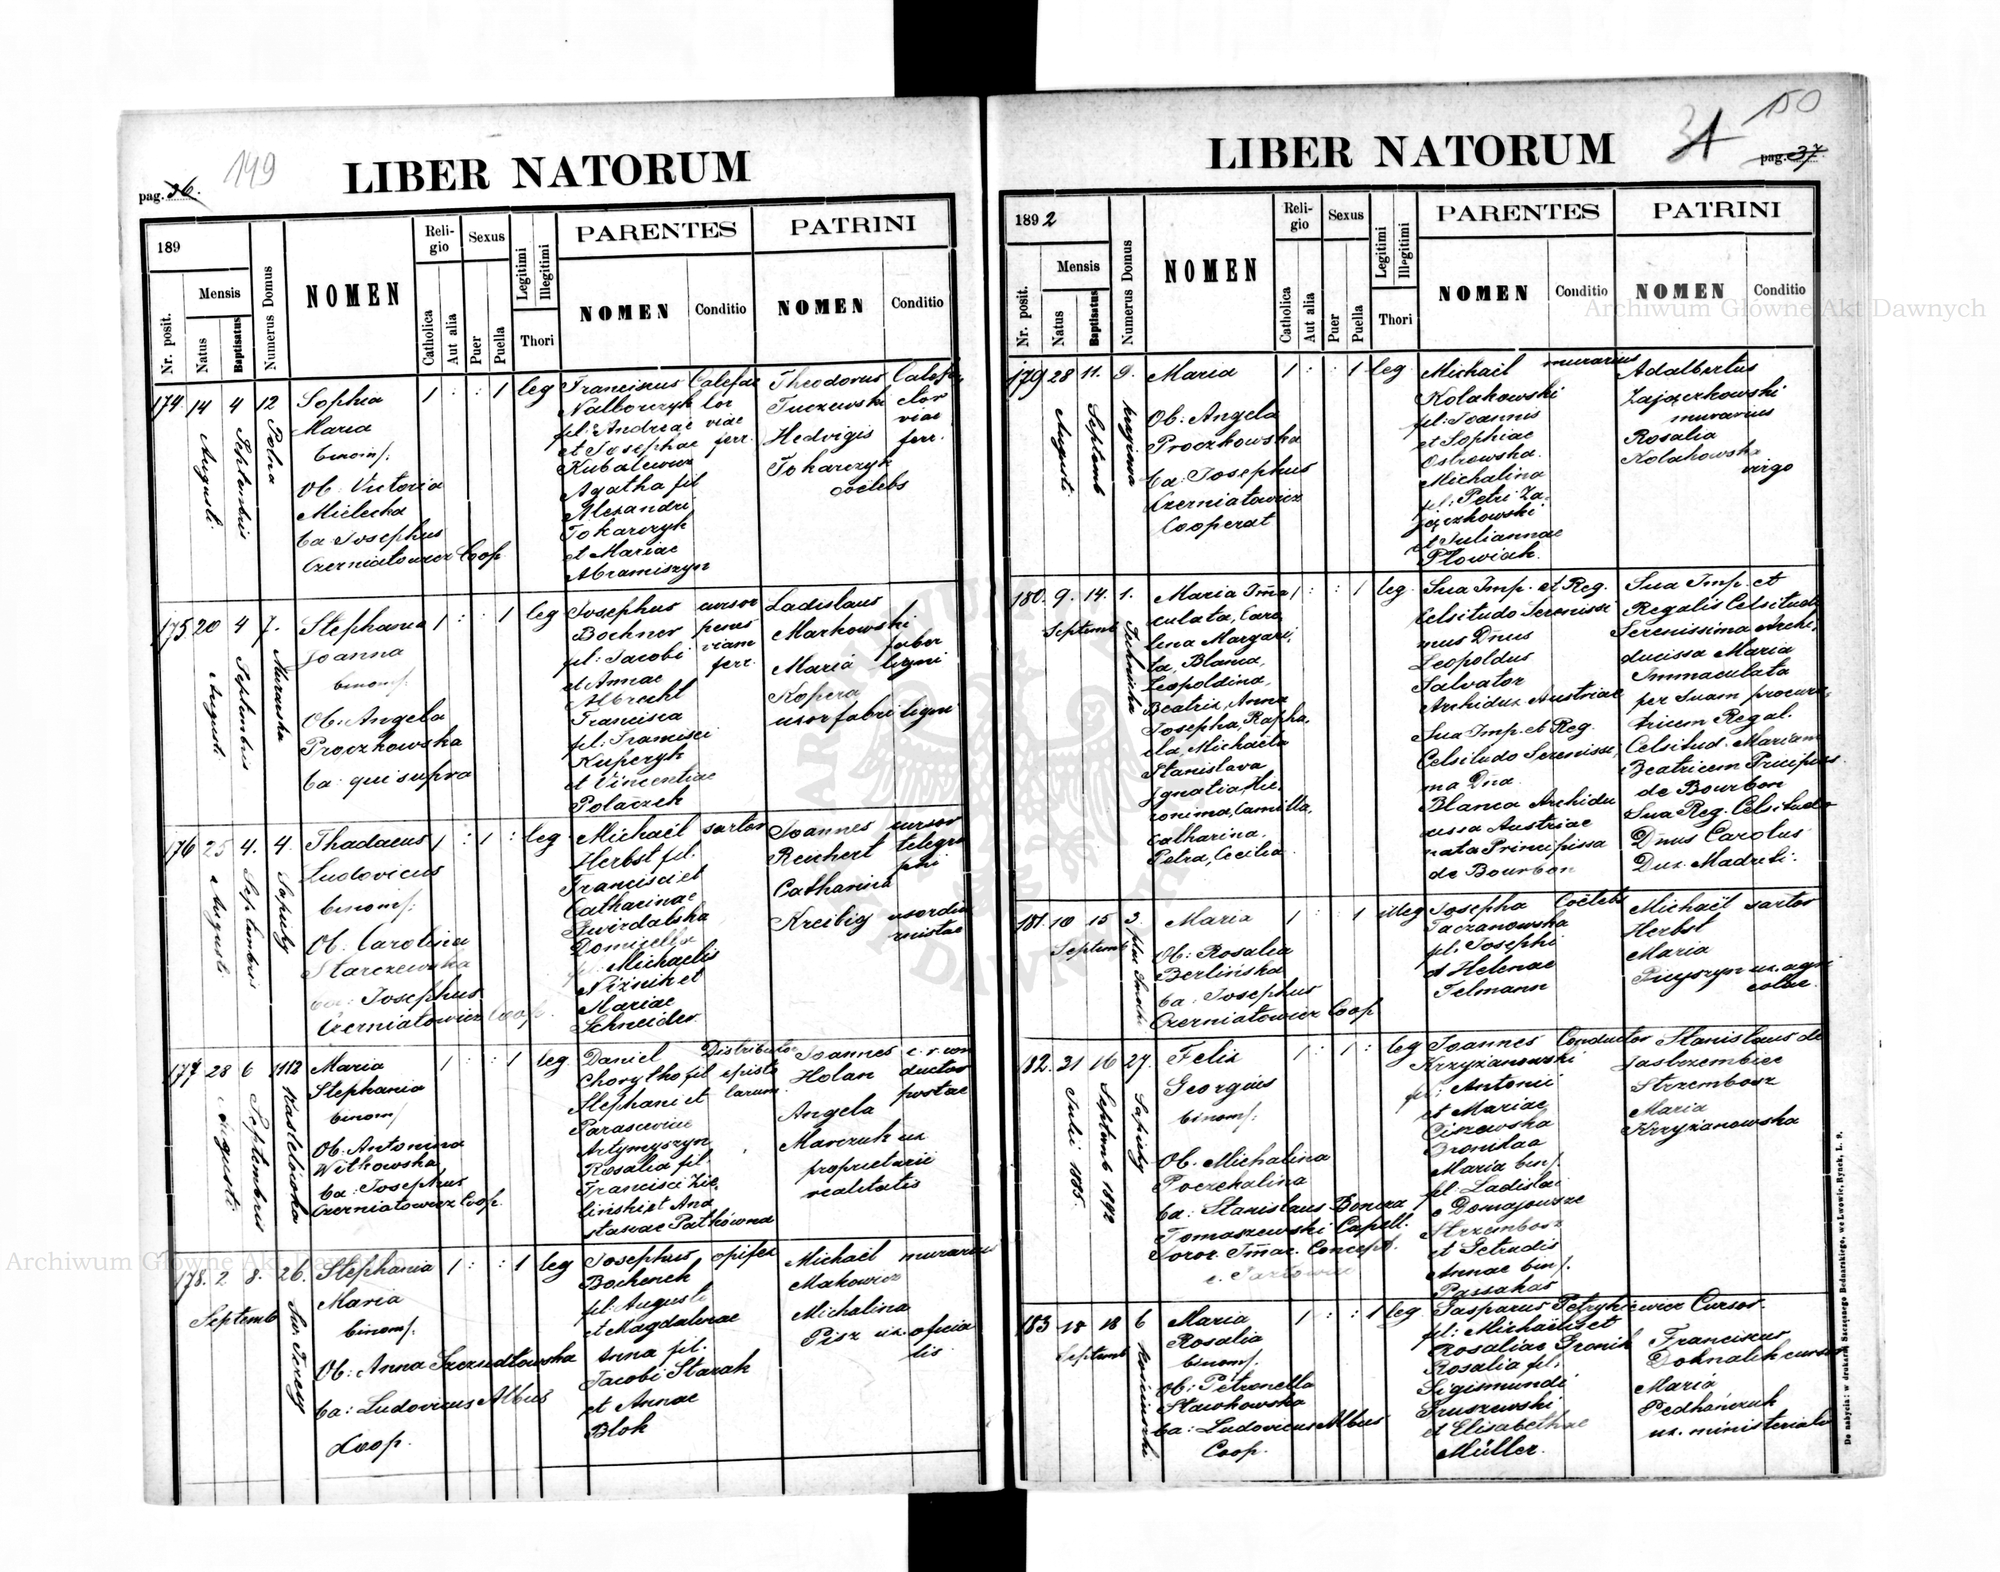 149
pag. 36.
LIBER NATORUM
189
Mensis
Nr. posit.
Natus
Baptisatus
Numerus Domus
NOMEN
Religio
Catholica
Aut alia
Sexus
Puer
Puella
Legitimi
Illegitimi
Thori
PARENTES
NOMEN
Conditio
PATRINI
NOMEN
Conditio
174 14 Augusti 4 Septembris 12 Polna
Sophia
Maria
binom:
Ob: Victoria
Mielecka
ba: Josephus
Czerniatowicz Coop.
1 : : 1 leg
Franciscus Calefac
Nalborczyk tor
fil: Andreae viae
et Josephae ferr.
Kubalewicz
Agatha fil
Alexandri
Tokarczyk
et Mariae
Abramiszyn
Theodorus Calefa
Tuczewski ctor
viae
Hedvigis ferr.
Tokarczyk
coelebs
175 20 Augusti 4 Septembris 7. Murarska
Stephania
Joanna
binom:
Ob: Angela
Proczkowska
ba: qui supra
1 : : 1 leg
Josephus cursor
Bochner penes
fil: Jacobi viam
et Annae ferr.
Albrecht
Francisca
fil: Francisci
Kuperyk
et Vincentiae
Polaczek
Ladislaus
Markowski faber
Maria ligni
Kopera
uxor fabri ligni
176 25 Augusti 4. Septembris 4 Sapiehy
Thadaeus
Ludovicus
binom:
Ob: Carolina
Starczewska
ba: Josephus
Czerniatowicz Coop.
1 : 1 : leg
Michaël sartor
Herbst fil.
Francisci et
Catharinae
Gwirdalska
Domicella
fil: Michaelis
Niźnik et
Mariae
Schneider
Joannes cursor
Reichert telegra
phi
Catharina
Kreibig uxor diu
rnistae
177 28 Augusti 6 Septembris 1112 Wasilewska
Maria
Stephania
binom:
Ob: Antonina
Witkowska
ba: Josephus
Czerniatowicz Coop.
1 : : 1 leg
Daniel Distributor
Chorytko fil episto
Stephani et larum
Parasceviae
Artymyszyn
Rosalia fil.
Francisci Zie
lińshi et Ana
stasiae Patkówna
Joannes c. r. con
Holan ductor
postae
Angela
Marczuk ux.
proprietarii
realitatis
178. 2 8. Septemb 26.
Stephania
Maria
binom:
Ob: Anna Szczudłowska
ba: Ludovicus Albus
Coop.
1 : : 1 leg
Josephus opifex
Bochenek
fil: Augusti
et Magdalenae
Anna fil.
Jacobi Starak
et Annae
Blok
Michaël murarius
Makowicz
Michalina
Pisz ux. oficia
lis.
31 150
LIBER NATORUM
pag. 37.
1892
Mensis
Nr. posit.
Natus
Baptisatus
Numerus Domus
NOMEN
Religio
Catholica
Aut alia
Sexus
Puer
Puella
Legitimi
Illegitimi
Thori
PARENTES
NOMEN
Conditio
PATRINI
NOMEN
Conditio
179 28 Augusti 11. Septemb 9.
Maria
Ob: Angela
Proczkowska
ba: Josephus
Czerniatowicz
Cooperat
1 : : 1 leg
Michaël murarius
Kolakowski
fil: Joannis
et Sophiae
Ostrowska.
Michalina
fil: Petri Za-
jączkowski
et Juliannae
Plowiak.
Adalbertus
Zajączkowski
murarius
Rosalia
Kolakowska
virgo
180. 9. 14. Septemb 1. Technicka
Maria Ima
culata, Caro
lina Margari,
ta, Blanca,
Leopoldina,
Beatrix, Anna
Josepha, Rapha,
ela, Michaela
Stanislava
Ignatia, Hie-
ronima, Camilla,
Catharina,
Petra, Cecilia
1 : : 1 leg.
Sua Imp. et Reg.
Celsitudo Serenissi
mus Dnus
Leopoldus
Salvator
Archidux Austriae
Sua Imp. et Reg.
Celsitudo Serenissi,
ma Dna
Blanca Archidu
cissa Austriae
nata Principissa
de Bourbon
Sua Imp. et
Regalis Celsitudo
Serenissima Archi,
ducissa Maria
Immaculata
per Suam procura,
tricem Regal.
Celsitud. Mariam
Beatricem Principiss
de Bourbon
Sua Reg. Celsitudo
Dnus Carolus
Dux Madriti.
181. 10 15 Septemb 3.
Maria
Ob: Rosalia
Berlińska
ba: Josephus
Czerniatowicz Coop
1 : : 1 illeg
Josepha Coelebs
Taczanowska
fil: Josephi
et Helenae
Telmann
Michaël sartor
Herbst
Maria
ux. agri
colae.
182. 31 Julii 1885. 16 Septemb 1892 27. Sapiehy
Felix
Georgius
binom:
Ob: Michalina
Poczekalina
ba: Stanislaus Boncza
Tomaszewski Capell.
Soror. Imac. Concept.
c. Jazłowiec
1 : 1 : leg
Joannes Conductor
Krzyżanowski
fil: Antonii
et Mariae
Ciszewska
Bronisłaa
Maria bin:
fil: Ladislai
e Domajowsze
Strzembosz
et Getrudis
Annae bin:
Passakas
Stanislaus de
Jastrzembiec
Strzembosz
Maria
Krzyżanowska
183 18 18 Septemb 6 Kościuszki
Maria
Rosalia
binom:
Ob: Petronella
Stawkowska
ba: Ludovicus Albus
Coop.
1 : : 1 leg.
Gasparus Petrykiewicz Cursor.
fil: Michaëlis et
Rosaliae Gronik
Rosalia fil:
Sigismundi
Gruszewski
et Elisabethae
Müller.
Franciscus
Doknalik cursor
Maria
Pedhańczuk
ux. ministerialis
De nabycia: w drukarni Szczęsnego Bednarskiego, we Lwowie, Rynek, L. 9.
Archiwum Główne Akt Dawnych
Archiwum Główne Akt Dawnych
ARCHIWUM GŁÓWNE AKT DAWNYCH